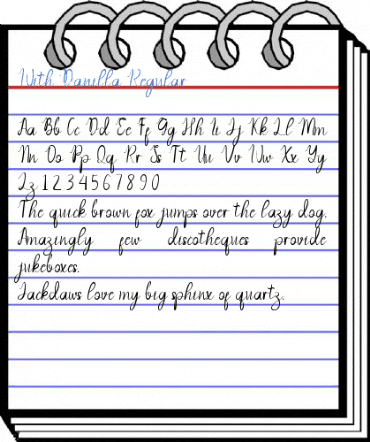 With Vanilla Regular
Aa Bb Cc Dd Ee Ff Gg Hh Ii Jj Kk Ll Mm
Nn Oo Pp Qq Rr Ss Tt Uu Vv Ww Xx Yy
Zz 1 2 3 4 5 6 7 8 9 0
The quick brown fox jumps over the lazy dog.
Amazingly few discotheques provide
jukeboxes.
Jackdaws love my big sphinx of quartz.